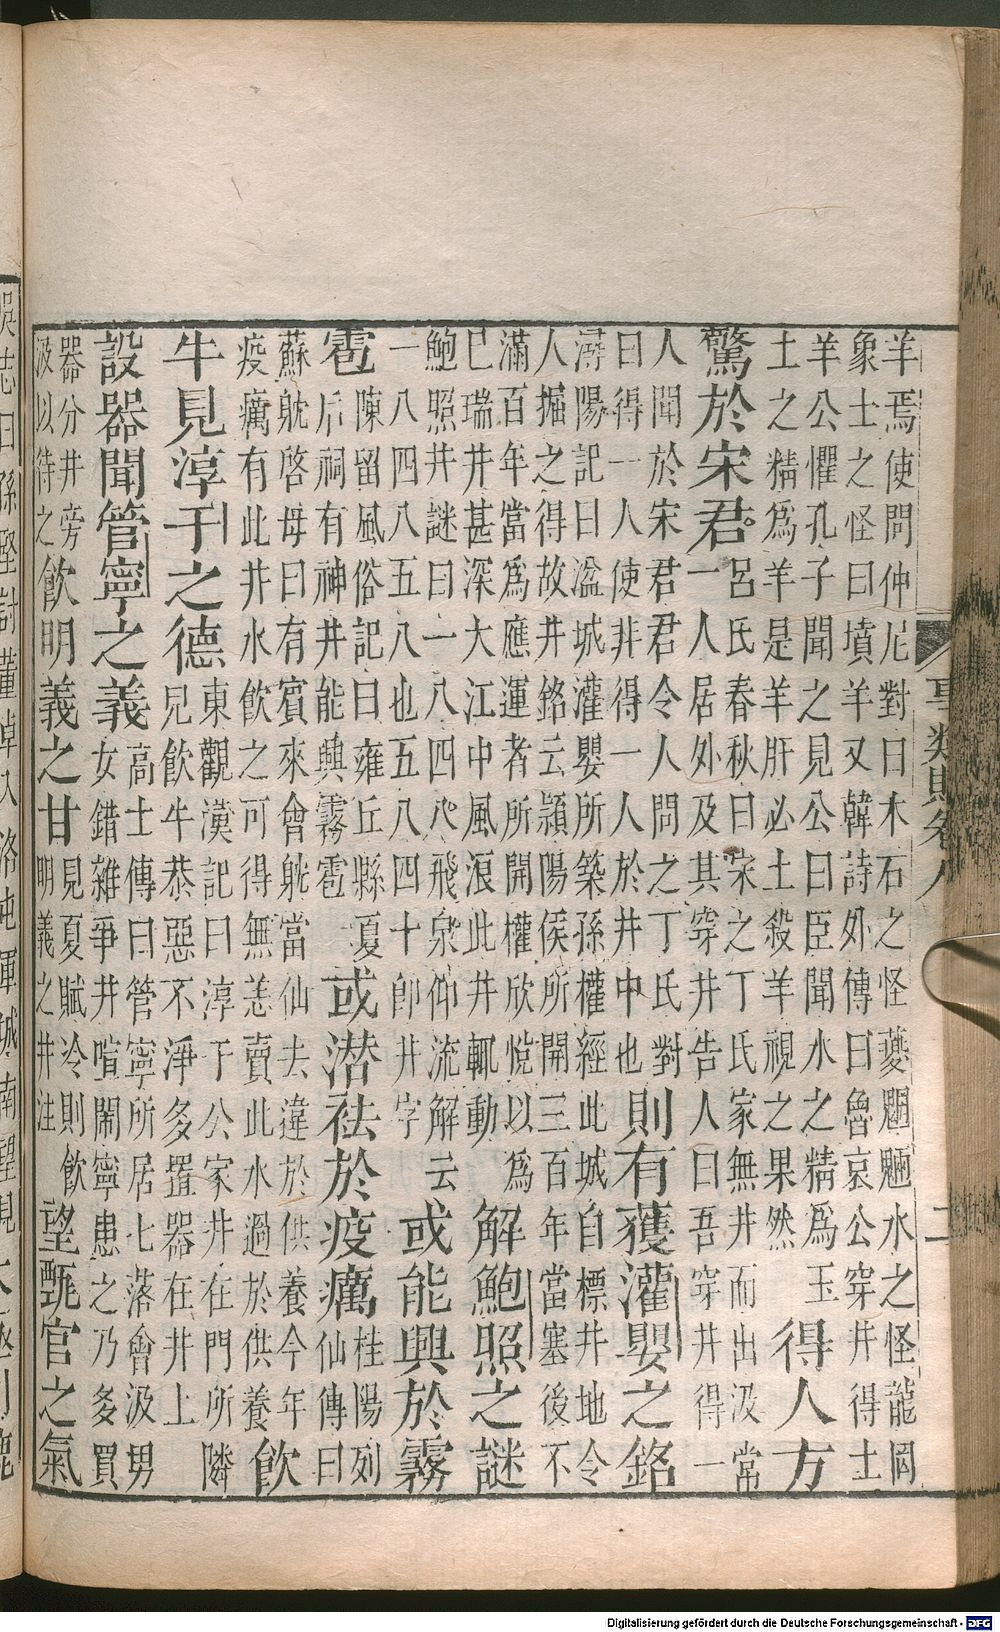 羊焉使問仲尼對曰木石之怪夔魍魎水之怪龍罔
象土之怪曰墳羊又韓詩外傳曰魯哀公穿井得土
羊公懼孔子聞之見公曰臣聞水之精為玉
土之精為羊是羊肝必土殺羊視之果然
得人方
驚於宋君
呂氏春秋曰宋之丁氏家無井而出汲常
一人居外及其穿井告人曰吾穿井得一
人聞於宋君君令人問之丁氏對
曰得一人使非得一人於井中也
則有獲灌嬰之銘
潯陽記曰湓城灌嬰所築孫權經此城自標井地令
人掘之得故井銘云潁陽侯所開三百年當塞後不
滿百年當為應運者所開權欣悅以為
已瑞井甚深大江中風浪此井輒動
解鮑照之謎
鮑照井謎曰一八四八飛泉仰流解云
一八四八五八也五八四十即井字
或能興於霧
雹
陳留風俗記曰雍丘縣夏
后祠有神井能興霧雹
或潛祛於疫癘
桂陽列
仙傳曰
蘇躭啓母曰有賓來會躭當仙去違於供養今年
疫癘有此井水飲之可得無恙賣此水過於供養
飲
牛見淳于之德
東觀漢記曰淳于公家井在門所隣
見飲牛恭惡不淨多置器在井上
設器聞管寧之義
高士傳曰管寧所居七落會汲男
女錯雜爭井喧鬧寧患之乃多買
器分井旁
汲以待之
飲明義之甘
見夏賦冷則飲
明義之井注
望甄官之氣
事類賦卷八
二
吳志曰孫堅討董卓入洛屯軍城南望見
Digitalisierung gefördert durch die Deutsche Forschungsgemeinschaft - DFG